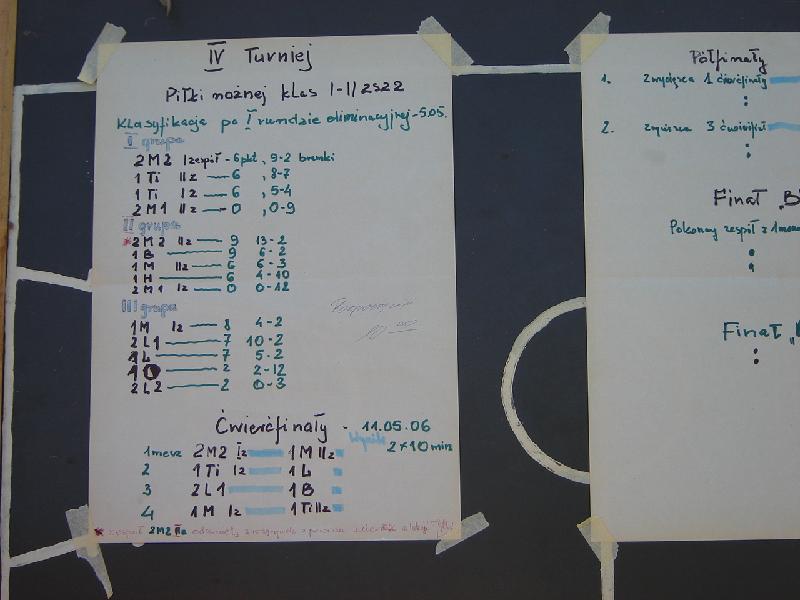 IV Turniej
Piłki nożnej klas I-II ZSZ2
Klasyfikacja po I rundzie eliminacyjnej - 5.05.
I grupa
2M2 Izespół - 6pkt, 9-2 bramki
1Ti IIz — 6, 8-7
1Ti Iz — 6, 5-4
2M1 IIz — 0, 0-9
II grupa
*2M2 IIz — 9 13-2
1B — 9 6-2
1M IIz — 6 6-3
1H — 6 4-10
2M1 Iz — 0 0-12
III grupa
1M Iz — 8 4-2
2L1 — 7 10-2
1L — 7 5-2
1 — 2 2-12
2L2 — 2 0-3
Rozpoczęcie
10
Ćwierćfinały - 11.05.06
Wynik 2×10min
1mecz 2M2 Iz 1M IIz
2 1Ti Iz 1L
3 2L1 1B
4 1M Iz 1Ti IIz
* zespół 2M2 IIz
Półfinały
1. zwycięzca 1 ćwierćfinały
:
2. 3
:
Finał „B
Pokonany zespół z 1
:
Finał „
: